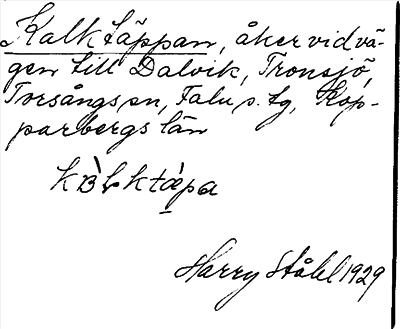 Kalktäppan, åker vid vä-
gen till Dalvik, Tronsjö,
Torsångs sn, Falu s. tg, Kop-
parbergs län
Harry Ståhl 1929